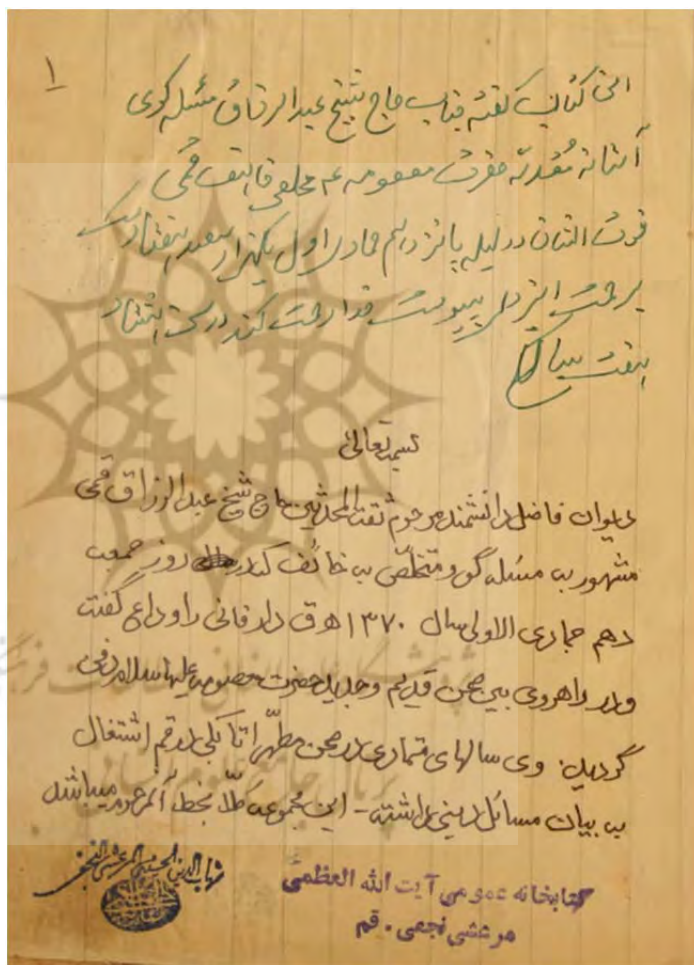 ۱
این کتاب گفته جناب حاج شیخ عبدالرزاق مسئله گوی
آستانه مقدسه حضرت معصومه ع متخلص خائف قمی
فوت ایشان در لیله پانزدهم جمادی اول یکهزار سیصد هفتاد
برحمت ایزدی پیوست خدا رحمت کند در سن هشتاد
هفت سال
بسمه تعالی
دیوان فاضل دانشمند مرحوم ثقةالمحدثین حاج شیخ عبدالرزاق قمی
مشهور ب مسئله گو و متخلص ب خائف که در روز جمعه
دهم جمادی الاولی سال ۱۳۷۰ ه ق دار فانی را وداع گفت
و در راهروی بین صحن قدیم و جدید حضرت معصومه علیها سلام دفن
گردید. وی سالهای متمادی در صحن مطهر اتابکی در قم اشتغال
ب بیان مسائل دینی داشته - این مجموعه کلاً بخط آنمرحوم میباشد
شهاب الدین الحسینی المرعشی النجفی
کتابخانه عمومی آیت الله العظمی
مرعشی نجفی . قم